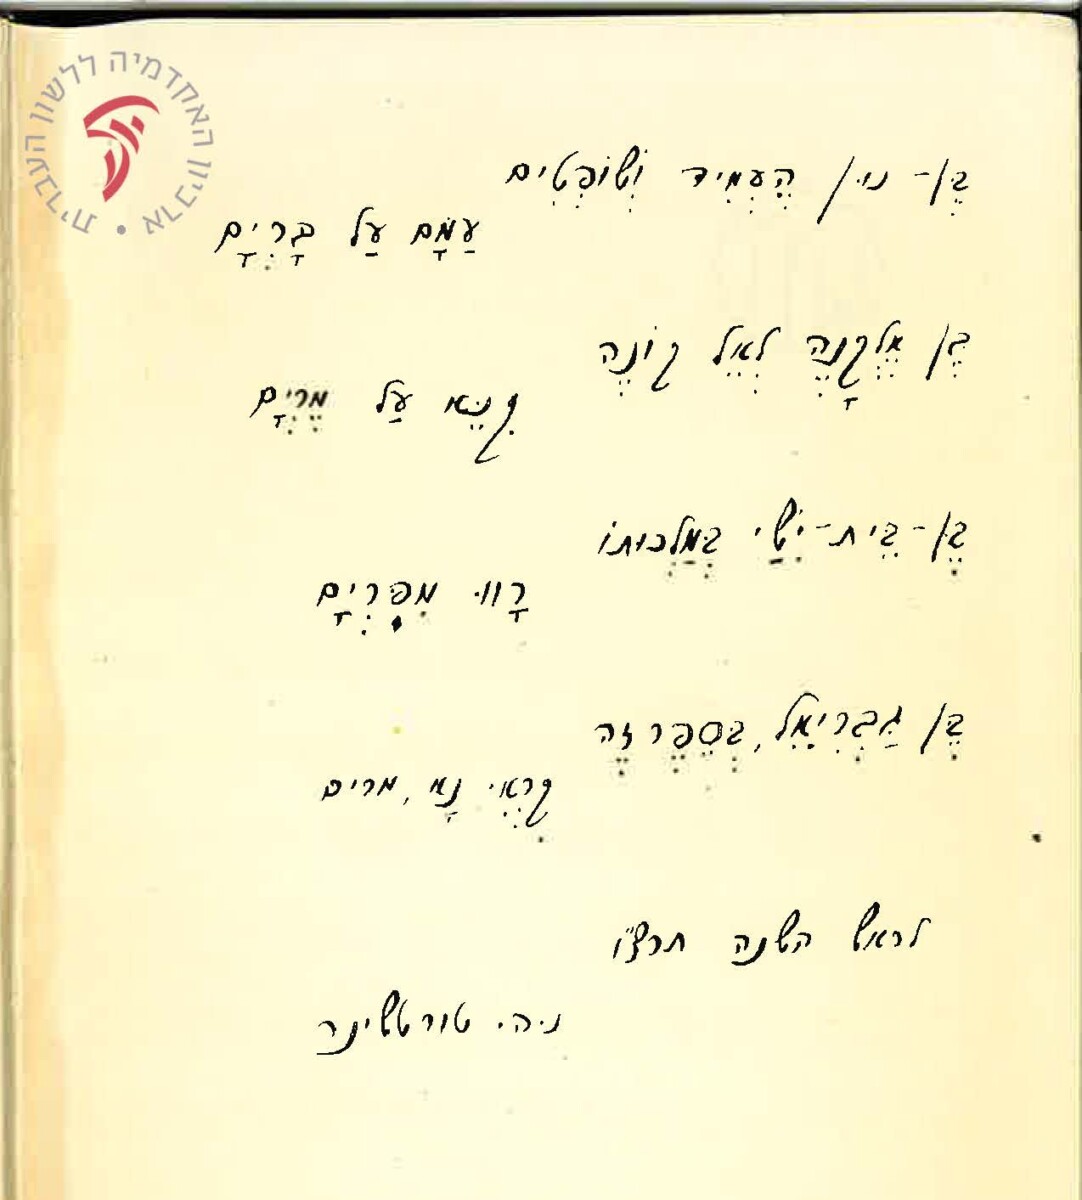 ארכיון האקדמיה ללשון העברית •
בֶּן־ נוּן הֶעְמִיד וְשׁוֹפְטִים
עַמָּם עַל בָּרְיָם
בֶּן אֶלְקָנָה לְאֵל קוֹנֶה
קִנֵּא עַל מֶרְיָם
בֶּן־בֵּית־יִשַׁי בְּמַלְכוּתוֹ
רָווּ מִפִּרְיָם
בֶּן גַּבְרִיאֵל, בְּסֵפֶר זֶה
קִרְאִי נָא, מרים
לראש השנה תרצ"ו
נ.ה. טורטשינר